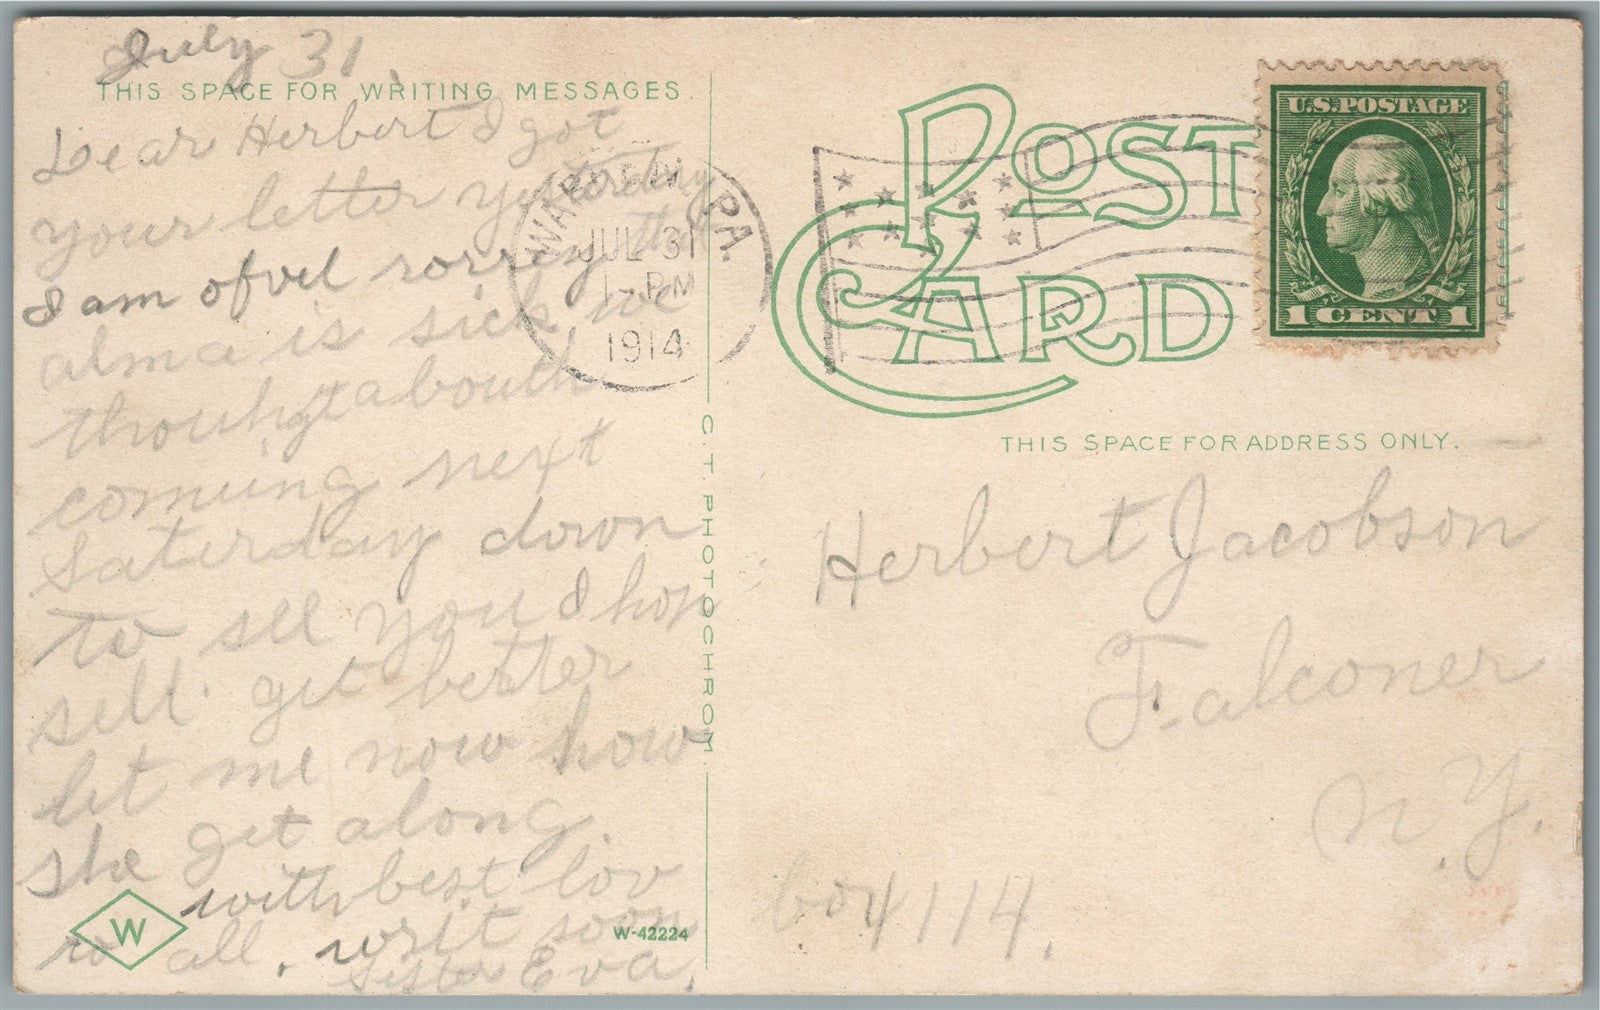 July 31,
THIS SPACE FOR WRITING MESSAGES
Dear Herbert I got
your letter yesterday
I am ofvel sorry that
alma is sick, we
thouhgt abouth
comeing next
Saturday down
to sell you I hop
sell get better
let me now how
she get along.
with best lov
to all. writ soon
Sister Eva.
W
W-42224
C. T. PHOTOCHROM
WARREN PA.
JUL 31
1 - PM
1914
POST
CARD
U.S. POSTAGE
1 CENT 1
THIS SPACE FOR ADDRESS ONLY.
Herbert Jacobson
Falconer
N. Y.
bo 4114.